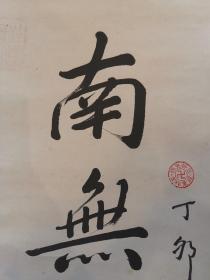 南無
丁卯